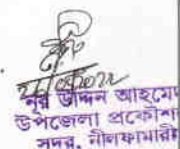 নূর উদ্দিন আহমেদ
উপজেলা প্রকৌশ
সদর, নীলফামারী